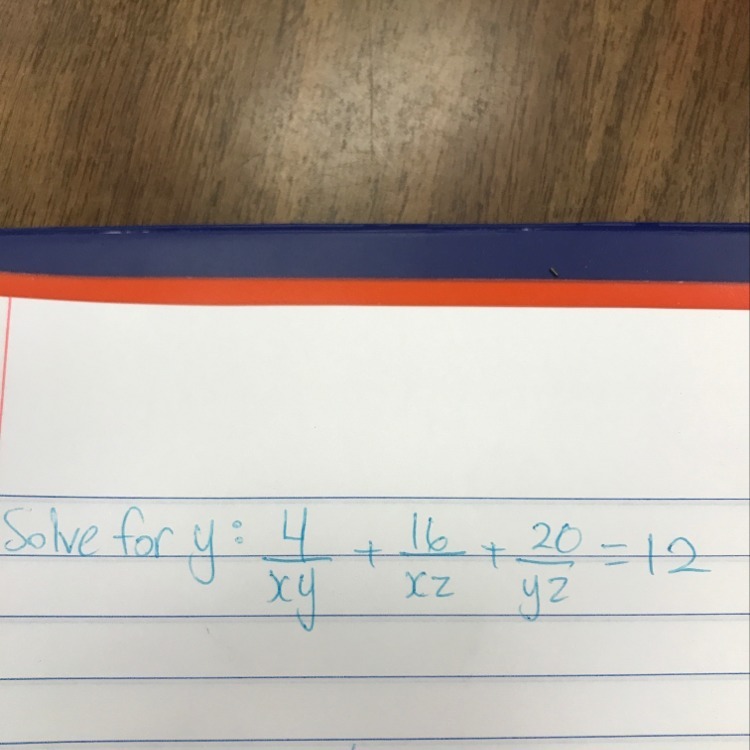 Solve for y: 4/xy + 16/xz + 20/yz = 12